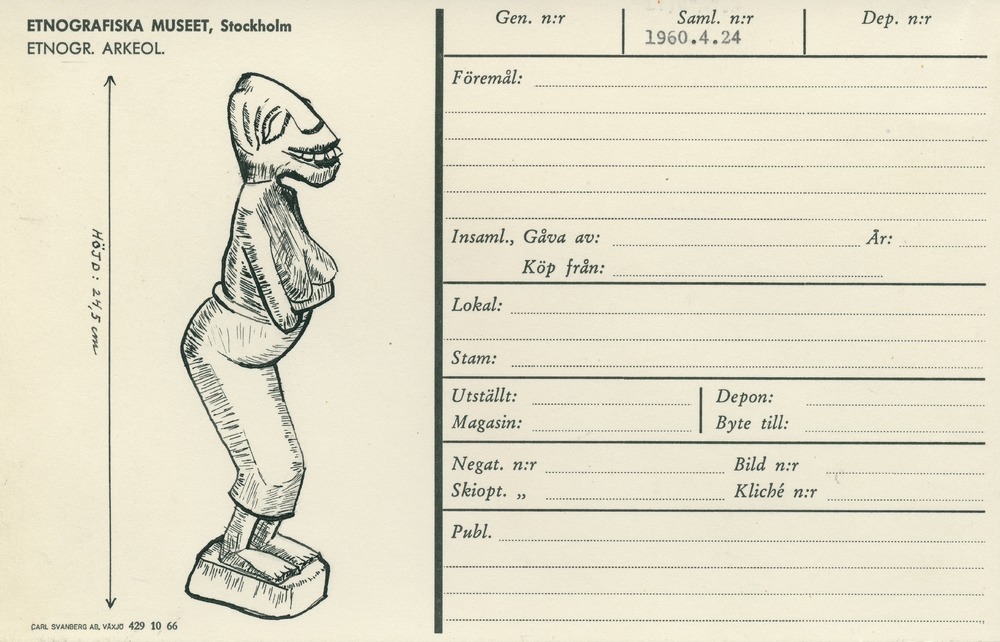 ETNOGRAFISKA MUSEET, Stockholm
ETNOGR. ARKEOL.
HÖJD: 24,5 cm
CARL SVANBERG AB, VÄXJÖ 429 10 66
Gen. n:r Saml. n:r Dep. n:r
1960.4.24
Föremål:
Insaml., Gåva av: År:
Köp från:
Lokal:
Stam:
Utställt: Depon:
Magasin: Byte till:
Negat. n:r Bild n:r
Skiopt. „ Kliché n:r
Publ.